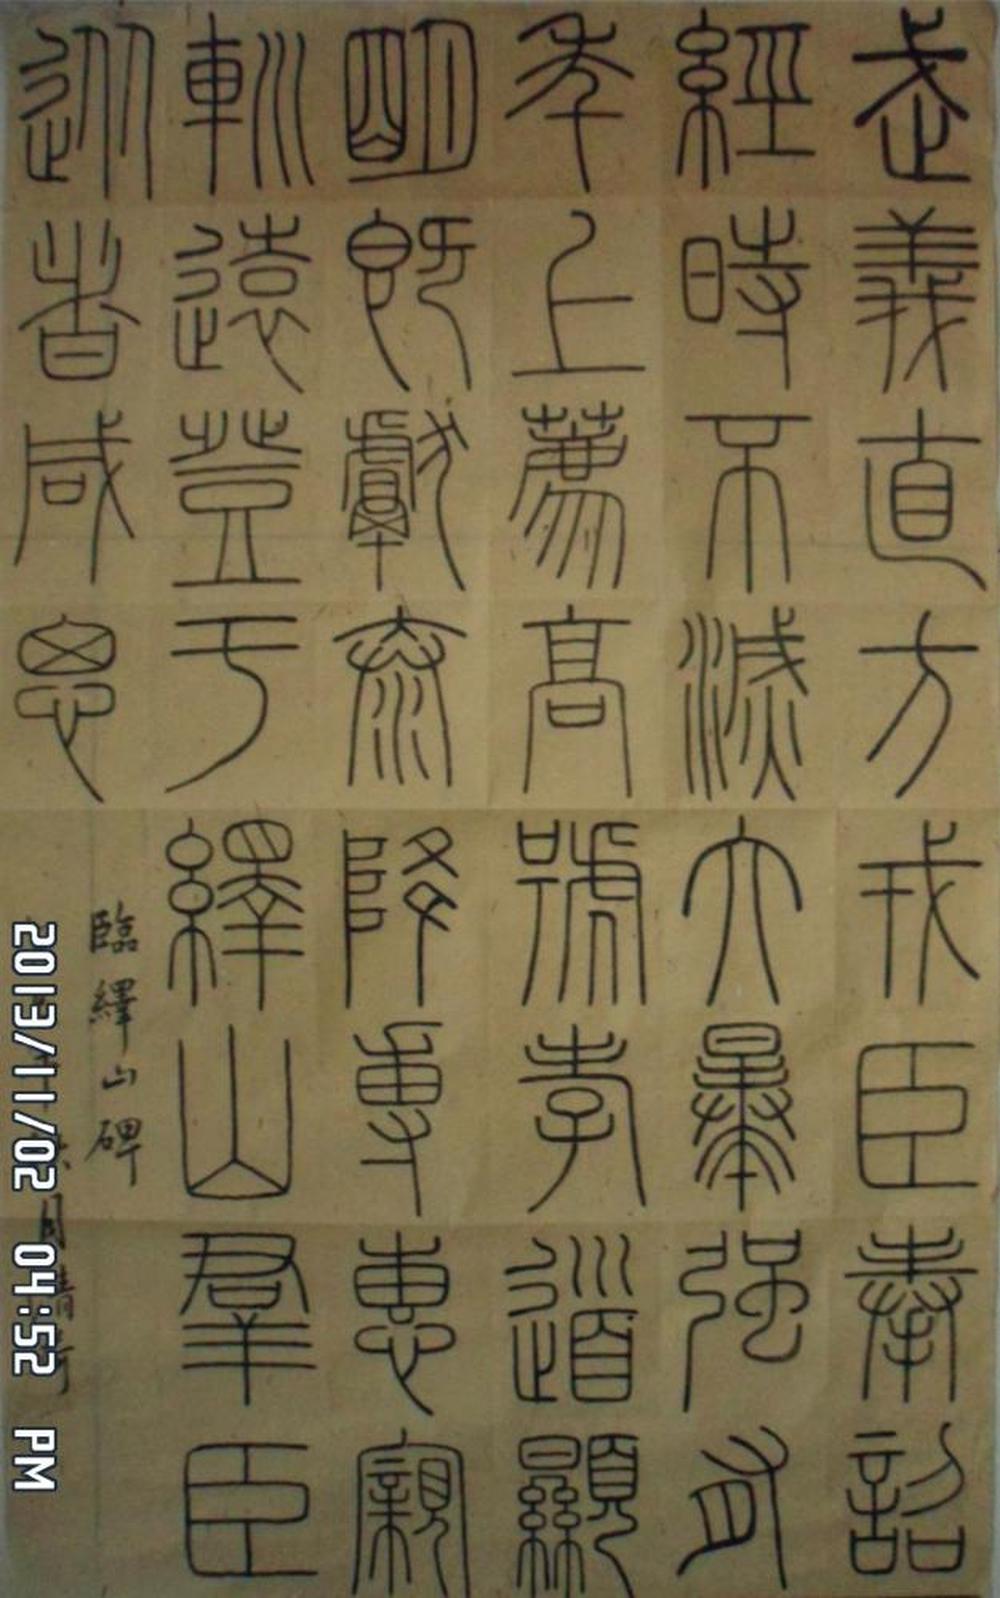 武義直方戎臣奉詔
經時不滅六暴強有
年上薦高號孝道顯
明既獻泰降專惠寴
㪅遠登于繹山羣臣
從者咸思
臨繹山碑
2013/11/02 04:52 PM